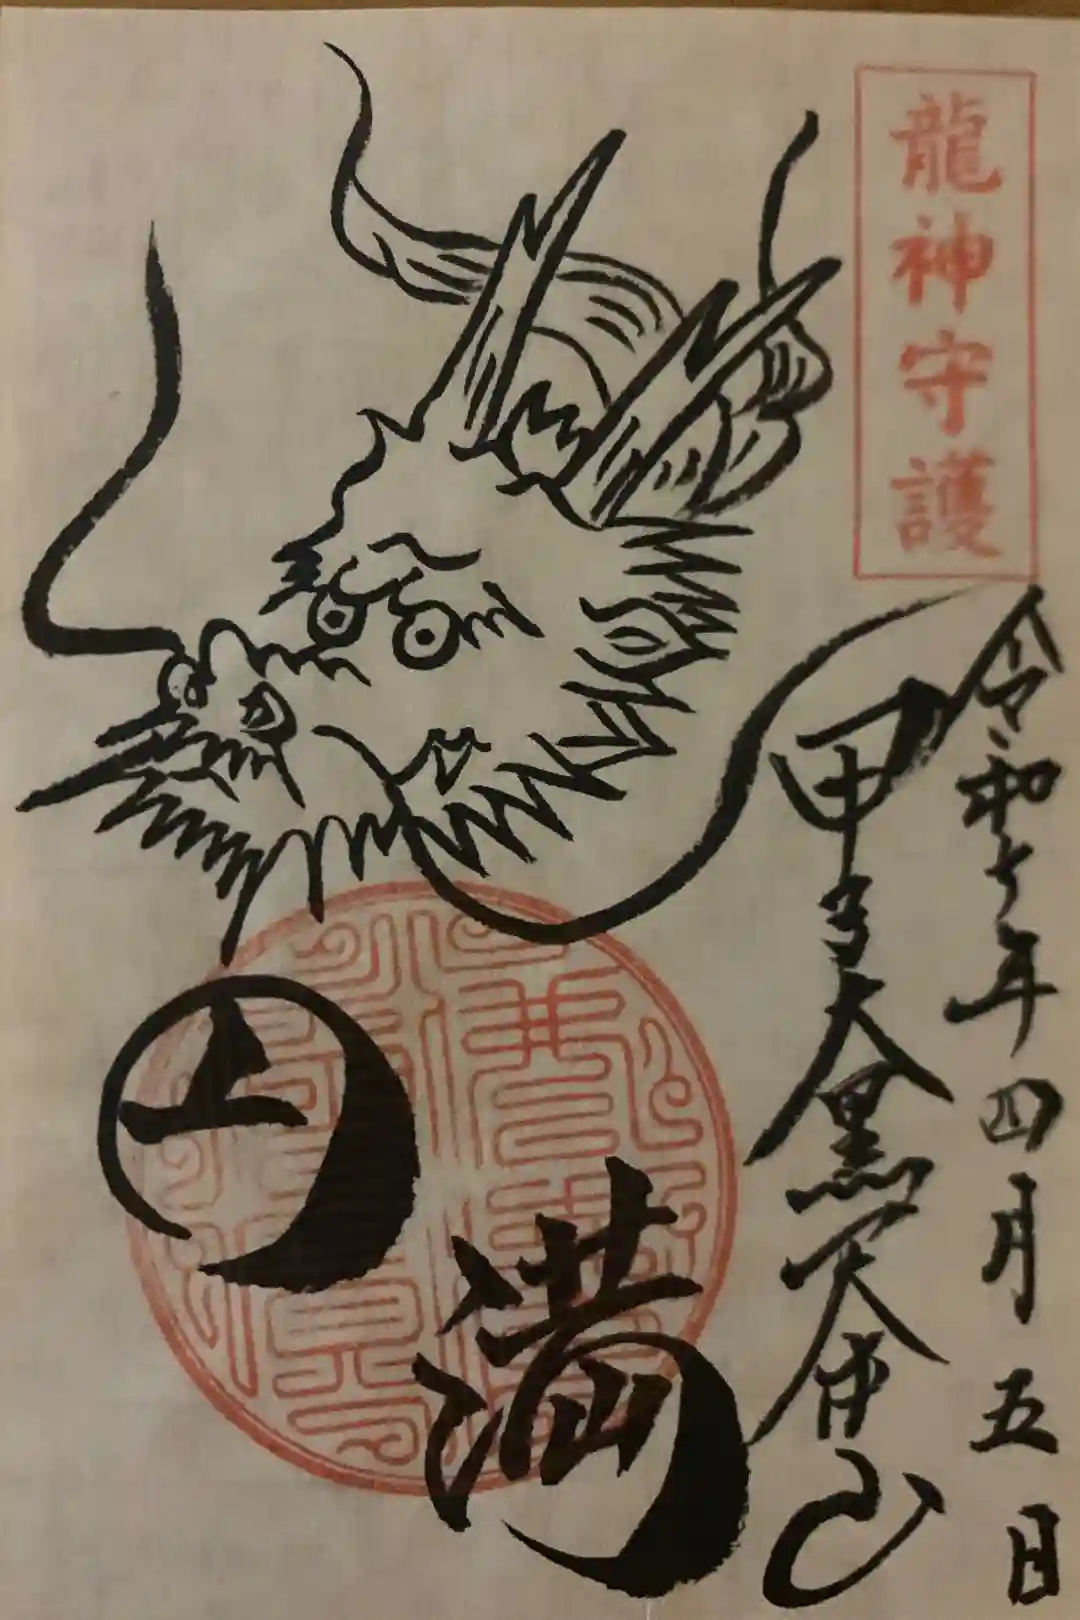 龍神守護
令和七年四月五日
甲子大黒天本山
円満